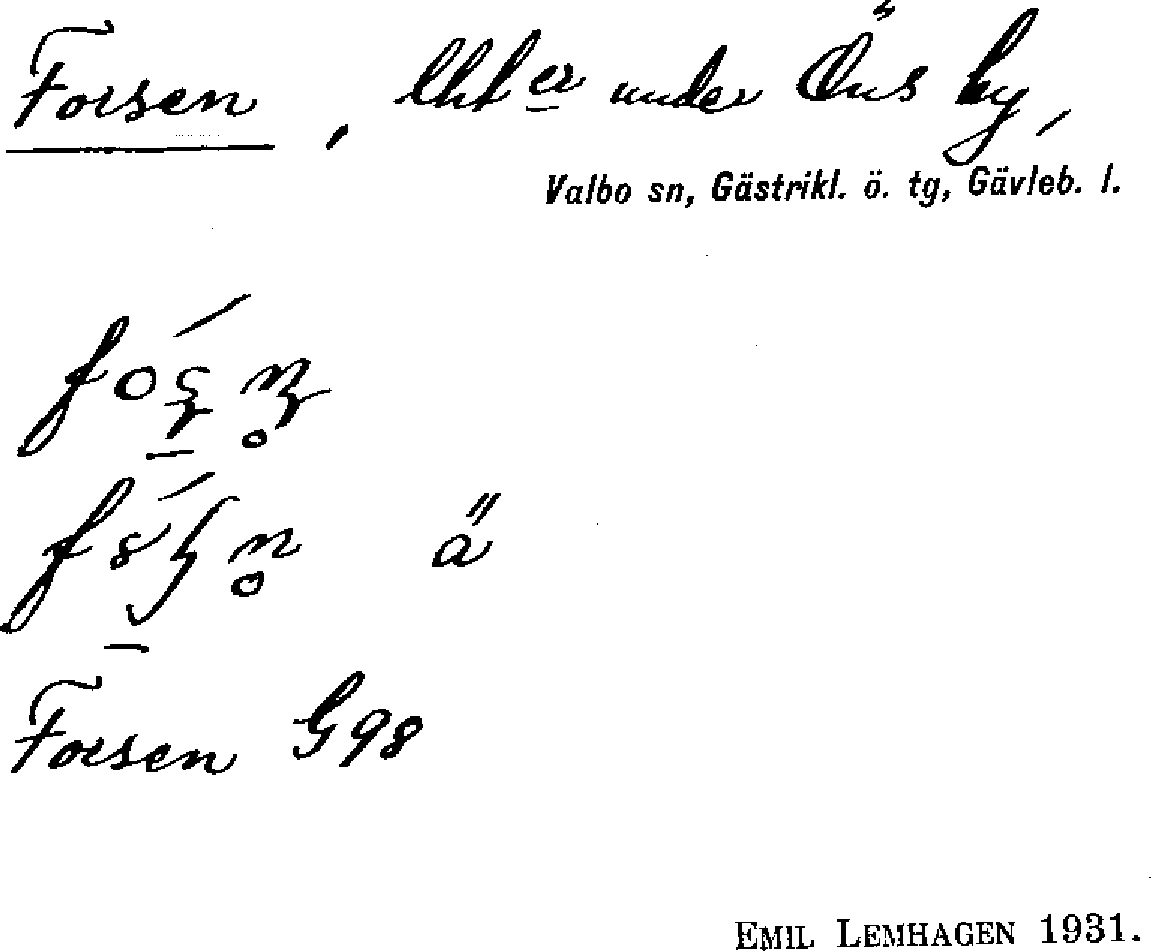 Forsen, lht er under Öns by,
Valbo sn, Gästrikl. ö. tg, Gävleb. l.
ä
Forsen G98
EMIL LEMHAGEN 1931.